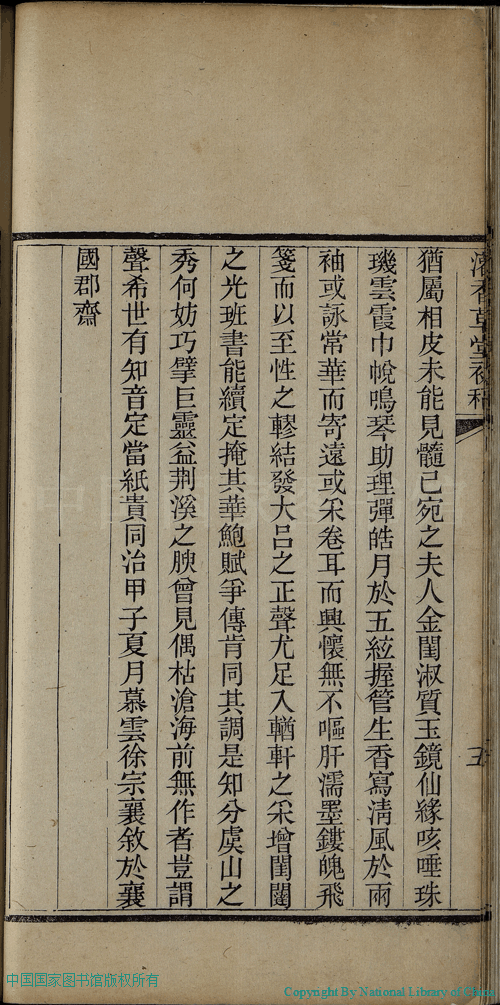 猶屬相皮未能見髓已宛之夫人金閨淑質玉鏡仙緣咳唾珠
璣雲霞巾帨鳴琴助理彈皓月於五絃握管生香寫淸風於兩
袖或詠常華而寄遠或采卷耳而興懷無不嘔肝濡墨鏤魄飛
箋而以至性之轇結發大呂之正聲尤足入輶軒之采增閨闥
之光班書能續定掩其華鮑賦爭傳肯同其調是知分虞山之
秀何妨巧擘巨靈益荆溪之腴曾見偶枯滄海前無作者豈謂
聲希世有知音定當紙貴同治甲子夏月慕雲徐宗襄敘於襄
國郡齋
香草堂
五
中国国家图书馆版权所有
Copyright By National Library of China